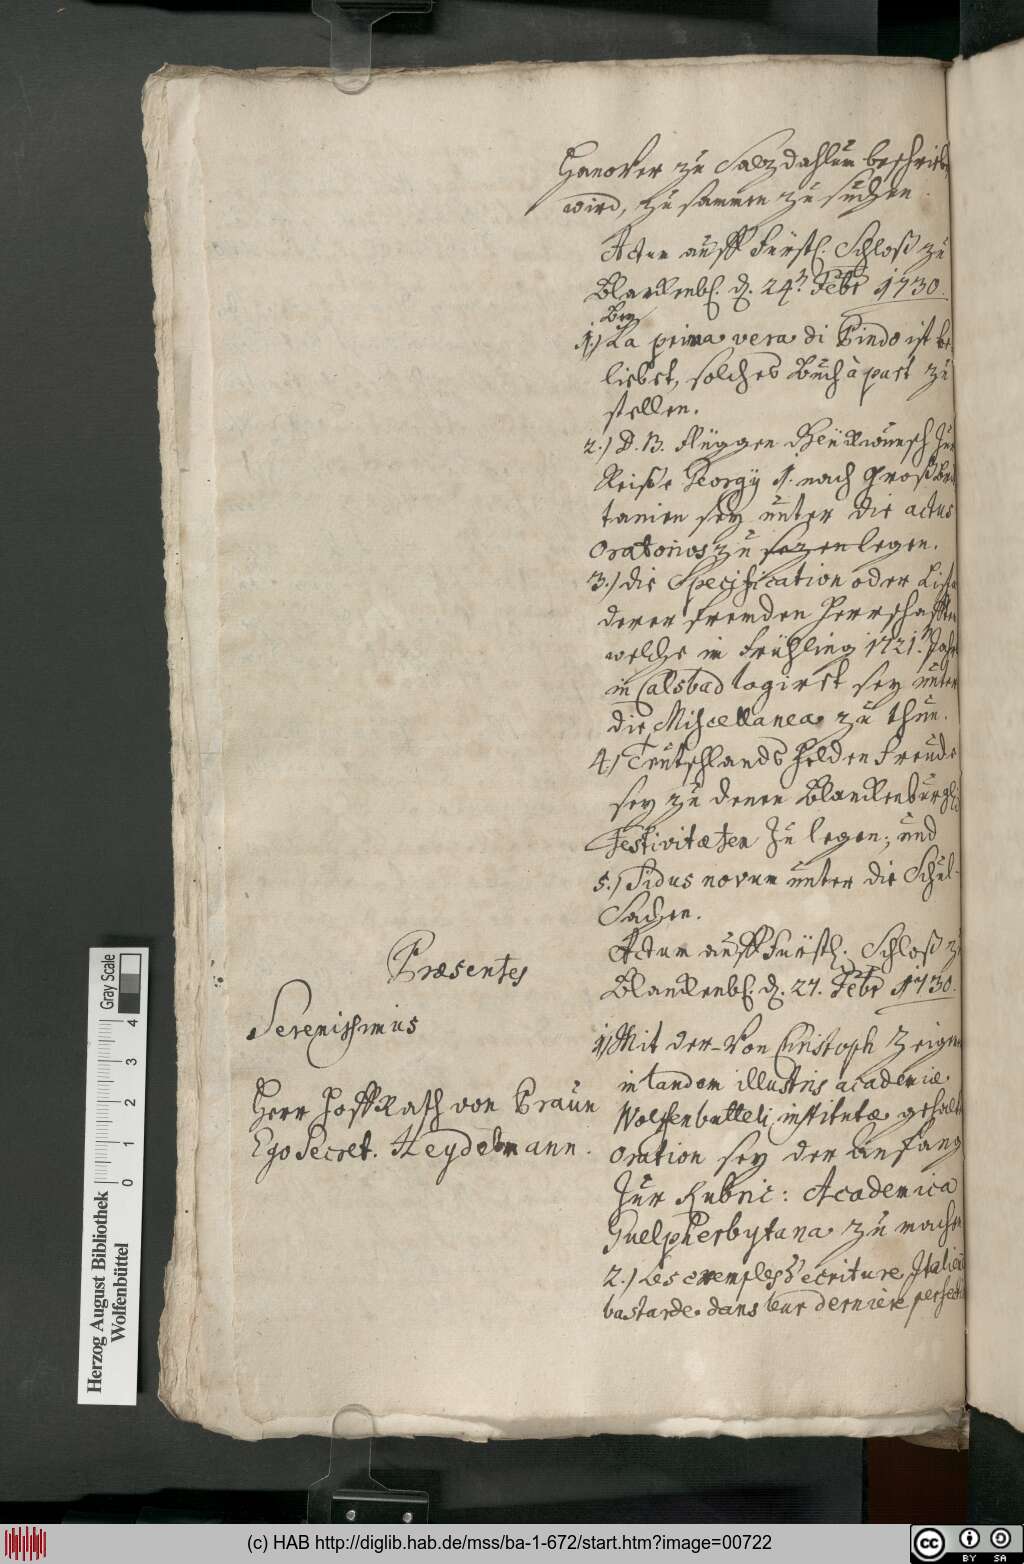 Hanover zu Saltzdahlum beschrieben
wird, zusammen zu suchen.
Actum auff Fürstl. Schloß zu
Blanckenb. d. 24t. Febr 1730.
Bey
1.) La prima vera di Pindo ist be-
liebet, solches Buch à part zu
stellen.
2.) D. B. Flüggen Glückwunsch zur
Reise Georgÿ 1. nach Groß Bri-
tanien sey unter die actus
Oratorios zu setzen legen.
3.) die Specification oder Liste
derer frembden Herrschafften
welche im Frühling 1721. Jahr
in Calsbad logiret sey unter
die Miscellanea zu thun.
4.) Teutschlands Helden Freude
sey zu denen Blanckenburgl.
Festivitæten zu legen; und
5.) Sidus novum unter die Schul-
Sachen.
Actum auff Fürstl. Schloß zu
Blanckenb. d. 27. Febr 1730.
Præsentes
Serenissimus
Herr HoffRath von Praun
Ego Secret. Heydemann.
1) Mit der von Christoph Zeigen
in laudem illustris academiæ
Wolffenbutteli institutæ gehalt
oration sey der Anfang
zur Rubric: Academica
Guelpherbytana zu machen
2.) Les exemples d'ecriture Italien
bastarde dans leur derniere perfecti
Gray Scale
4
3
2
1
0
Herzog August Bibliothek
Wolfenbüttel
(c) HAB http://diglib.hab.de/mss/ba-1-672/start.htm?image=00722
cc BY SA